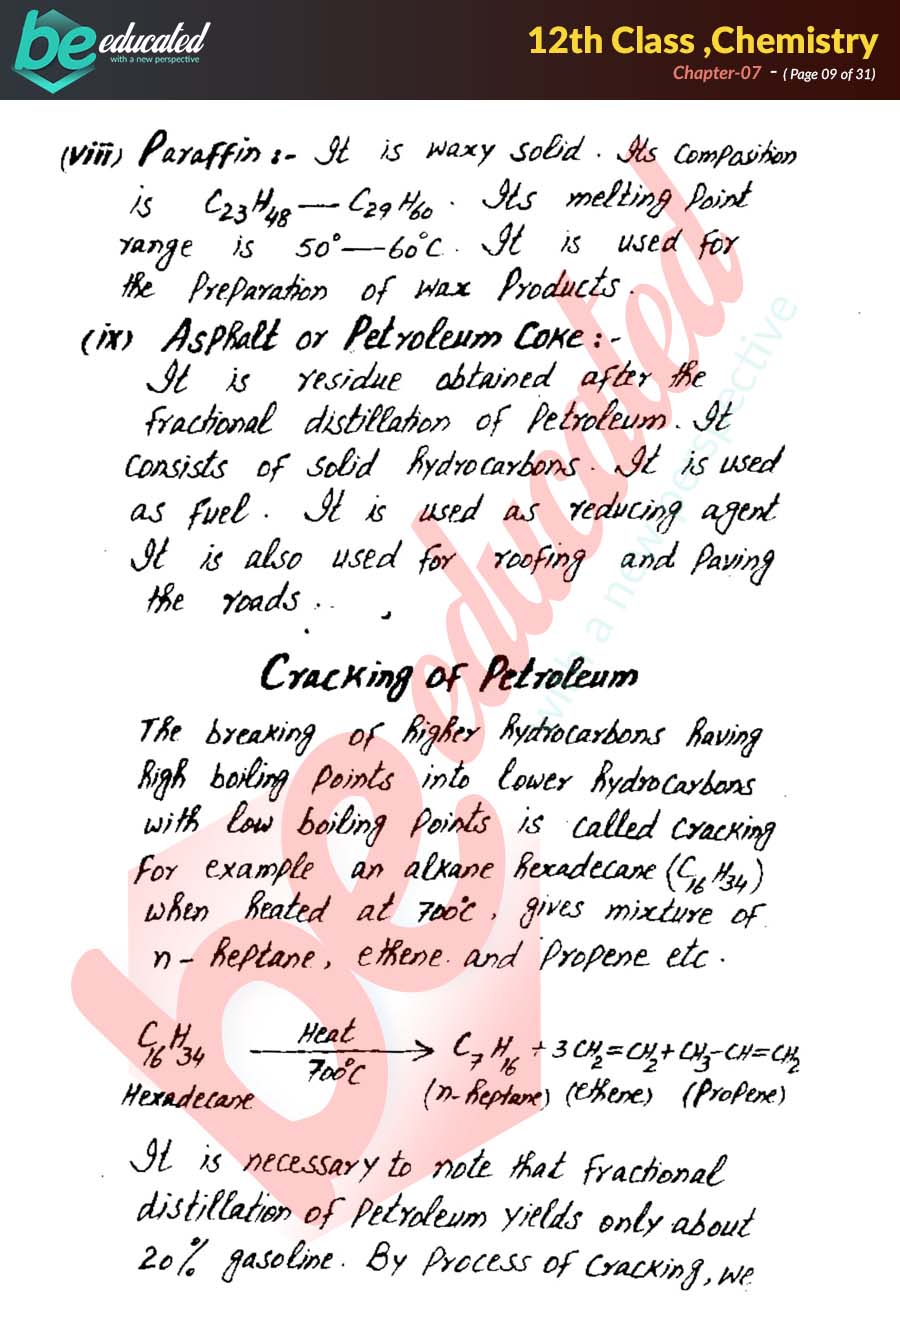 be educated
with a new perspective
12th Class ,Chemistry
Chapter-07 - ( Page 09 of 31)
(viii) Paraffin :- It is waxy solid. Its composition
is C₂₃H₄₈ — C₂₉H₆₀. Its melting point
range is 50° — 60°C. It is used for
the preparation of wax products.
(ix) Asphalt or Petroleum Coke :-
It is residue obtained after the
fractional distillation of petroleum. It
consists of solid hydrocarbons. It is used
as fuel. It is used as reducing agent
It is also used for roofing and paving
the roads..
Cracking of Petroleum
The breaking of higher hydrocarbons having
high boiling points into lower hydrocarbons
with low boiling points is called cracking
for example an alkane hexadecane (C₁₆H₃₄)
when heated at 700°C, gives mixture of
n-heptane, ethene and propene etc.
C₁₆H₃₄ Heat 700°C → C₇H₁₆ + 3CH₂=CH₂ + CH₃-CH=CH₂
Hexadecane (n-heptane) (ethene) (propene)
It is necessary to note that fractional
distillation of petroleum yields only about
20% gasoline. By process of cracking, we
be educated
with a new perspective